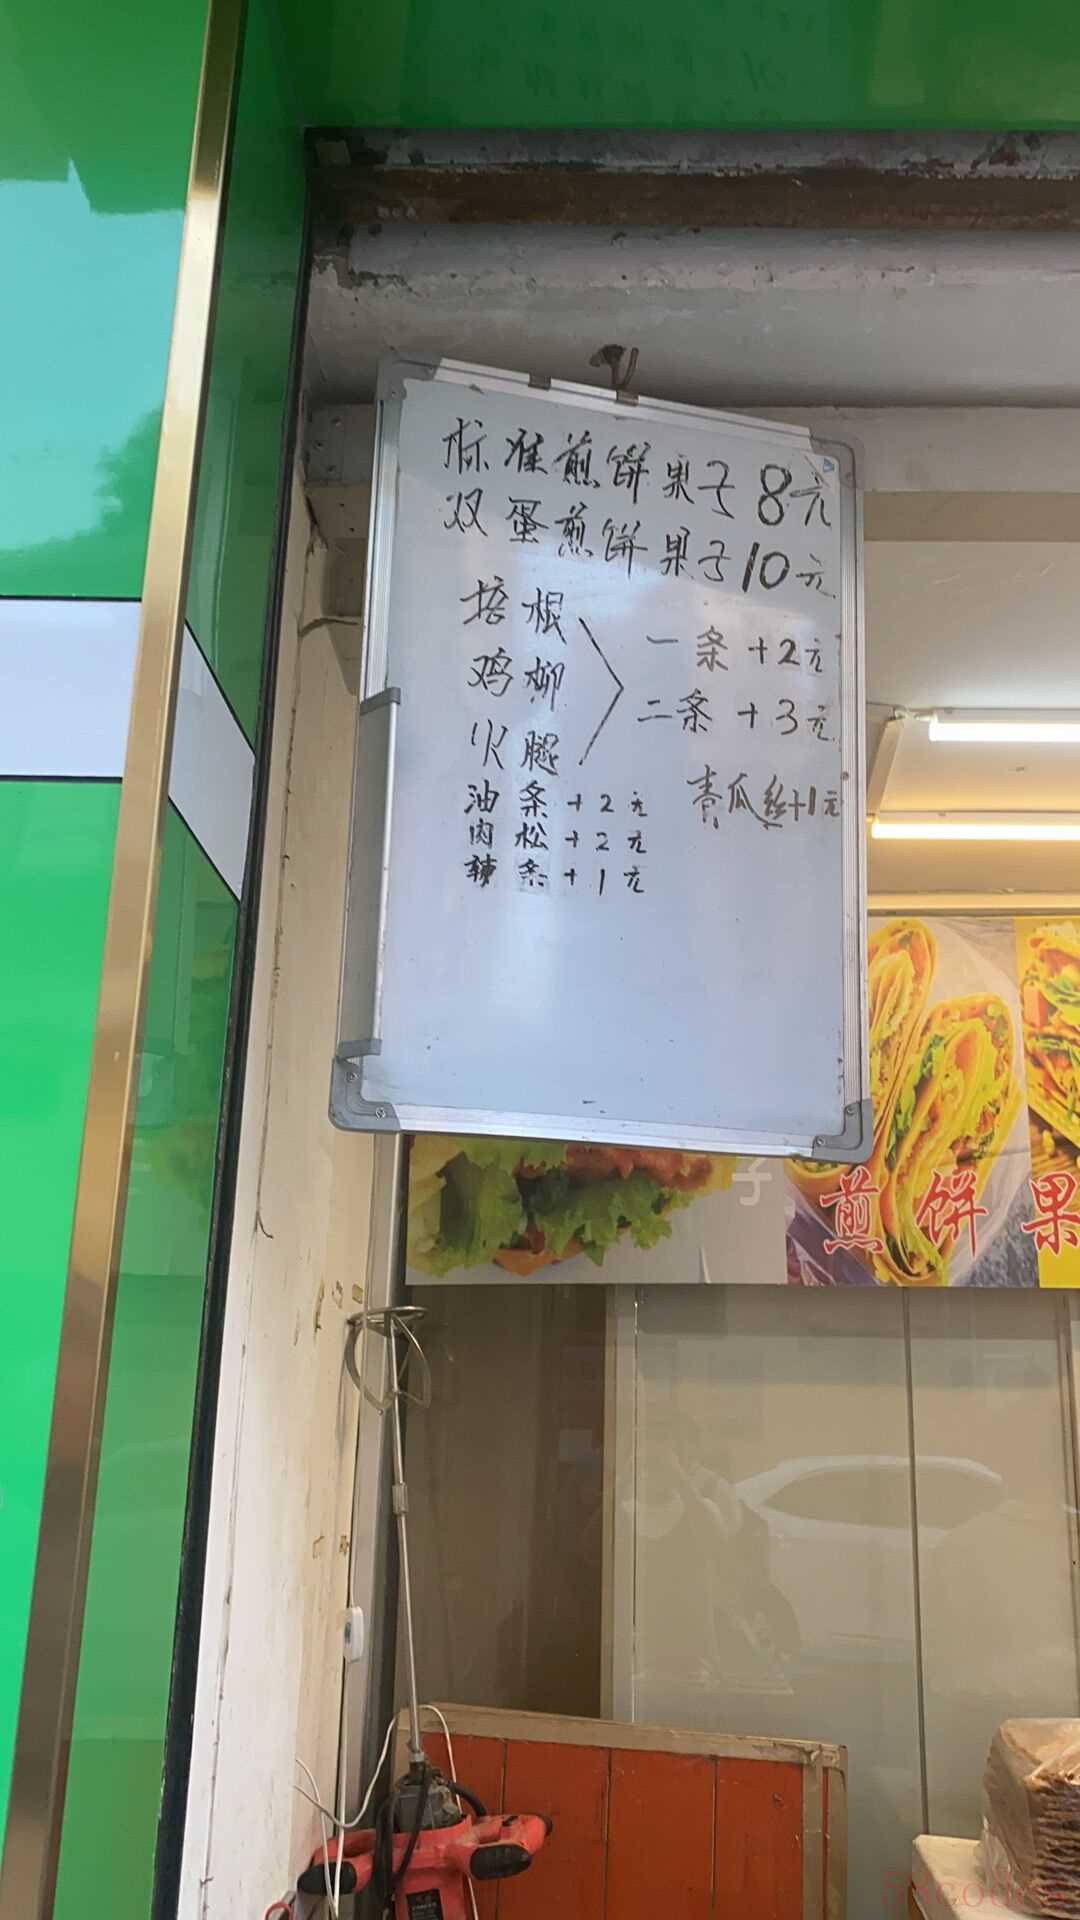 标准煎饼果子8元
双蛋煎饼果子10元
培根
鸡柳
火腿
一条+2元
二条+3元
油条+2元
肉松+2元
辣条+1元
青瓜丝+1元
子
煎饼果